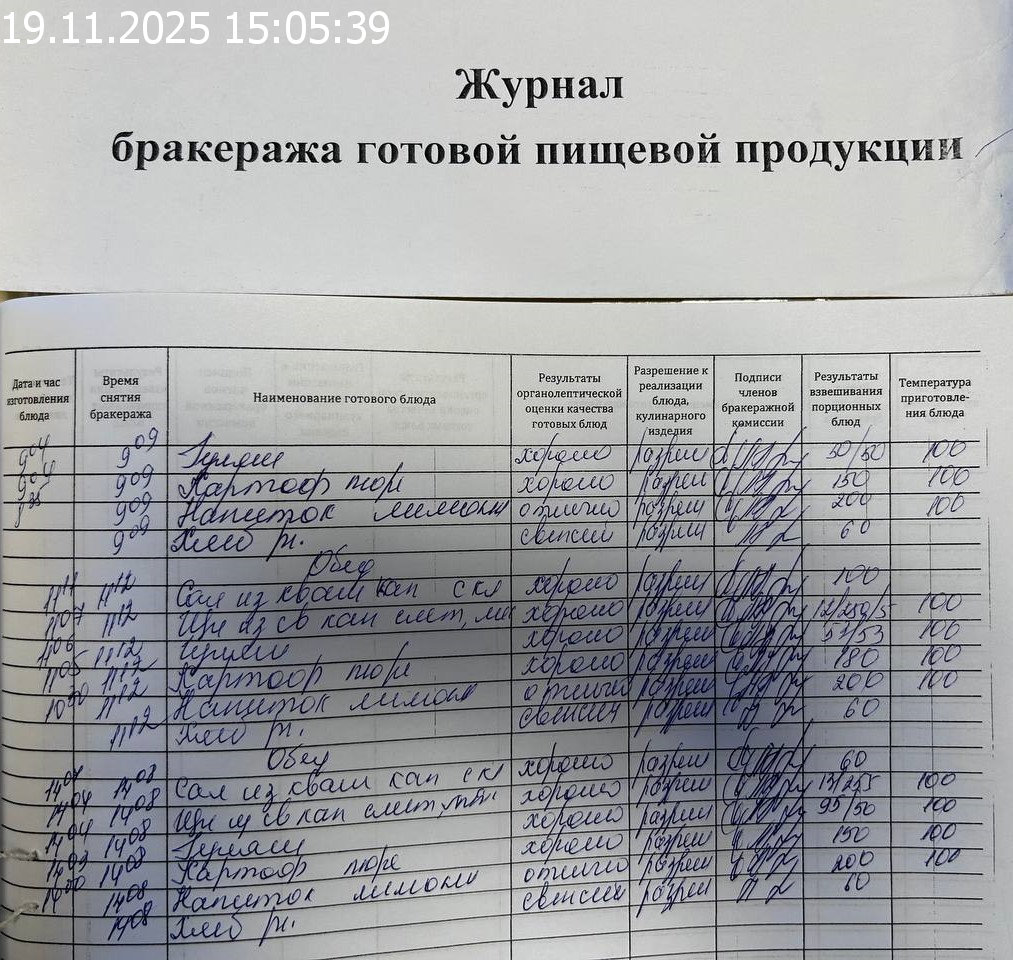 19.11.2025 15:05:39
Журнал
бракеража готовой пищевой продукции
Дата и час изготовления блюда Время снятия бракеража Наименование готового блюда Результаты органолептической оценки качества готовых блюд Разрешение к реализации блюда, кулинарного изделия Подписи членов бракеражной комиссии Результаты взвешивания порционных блюд Температура приготовле-ния блюда
9 04 9 09 Гуляш хорошо разреш 50/50 100
9 04 9 09 Картоф пюре хорошо разреш 150 100
9 09 Напиток лимонн отлично разреш 200 100
9 09 Хлеб рж. свежий разреш 60
Обед
11 11 11 12 Сал из кваш кап с кл хорошо разреш 100
11 07 11 12 Щи из св кап смет, хорошо разреш 100
11 06 11 12 Гуляш хорошо разреш 100
11 05 11 12 Картоф пюре хорошо разреш 180 100
11 12 Напиток лимонн отлично разреш 200 100
11 12 Хлеб рж. свежий разреш 60
Обед
14 08 Сал из кваш кап с кл хорошо разреш 60
14 04 14 08 Щи из св кап смет, хорошо разреш 100
14 04 14 08 Гуляш хорошо разреш 95/50 100
14 08 Картоф пюре хорошо разреш 150 100
14 08 Напиток лимонн отлично разреш 200 100
14 08 Хлеб рж. свежий разреш 60